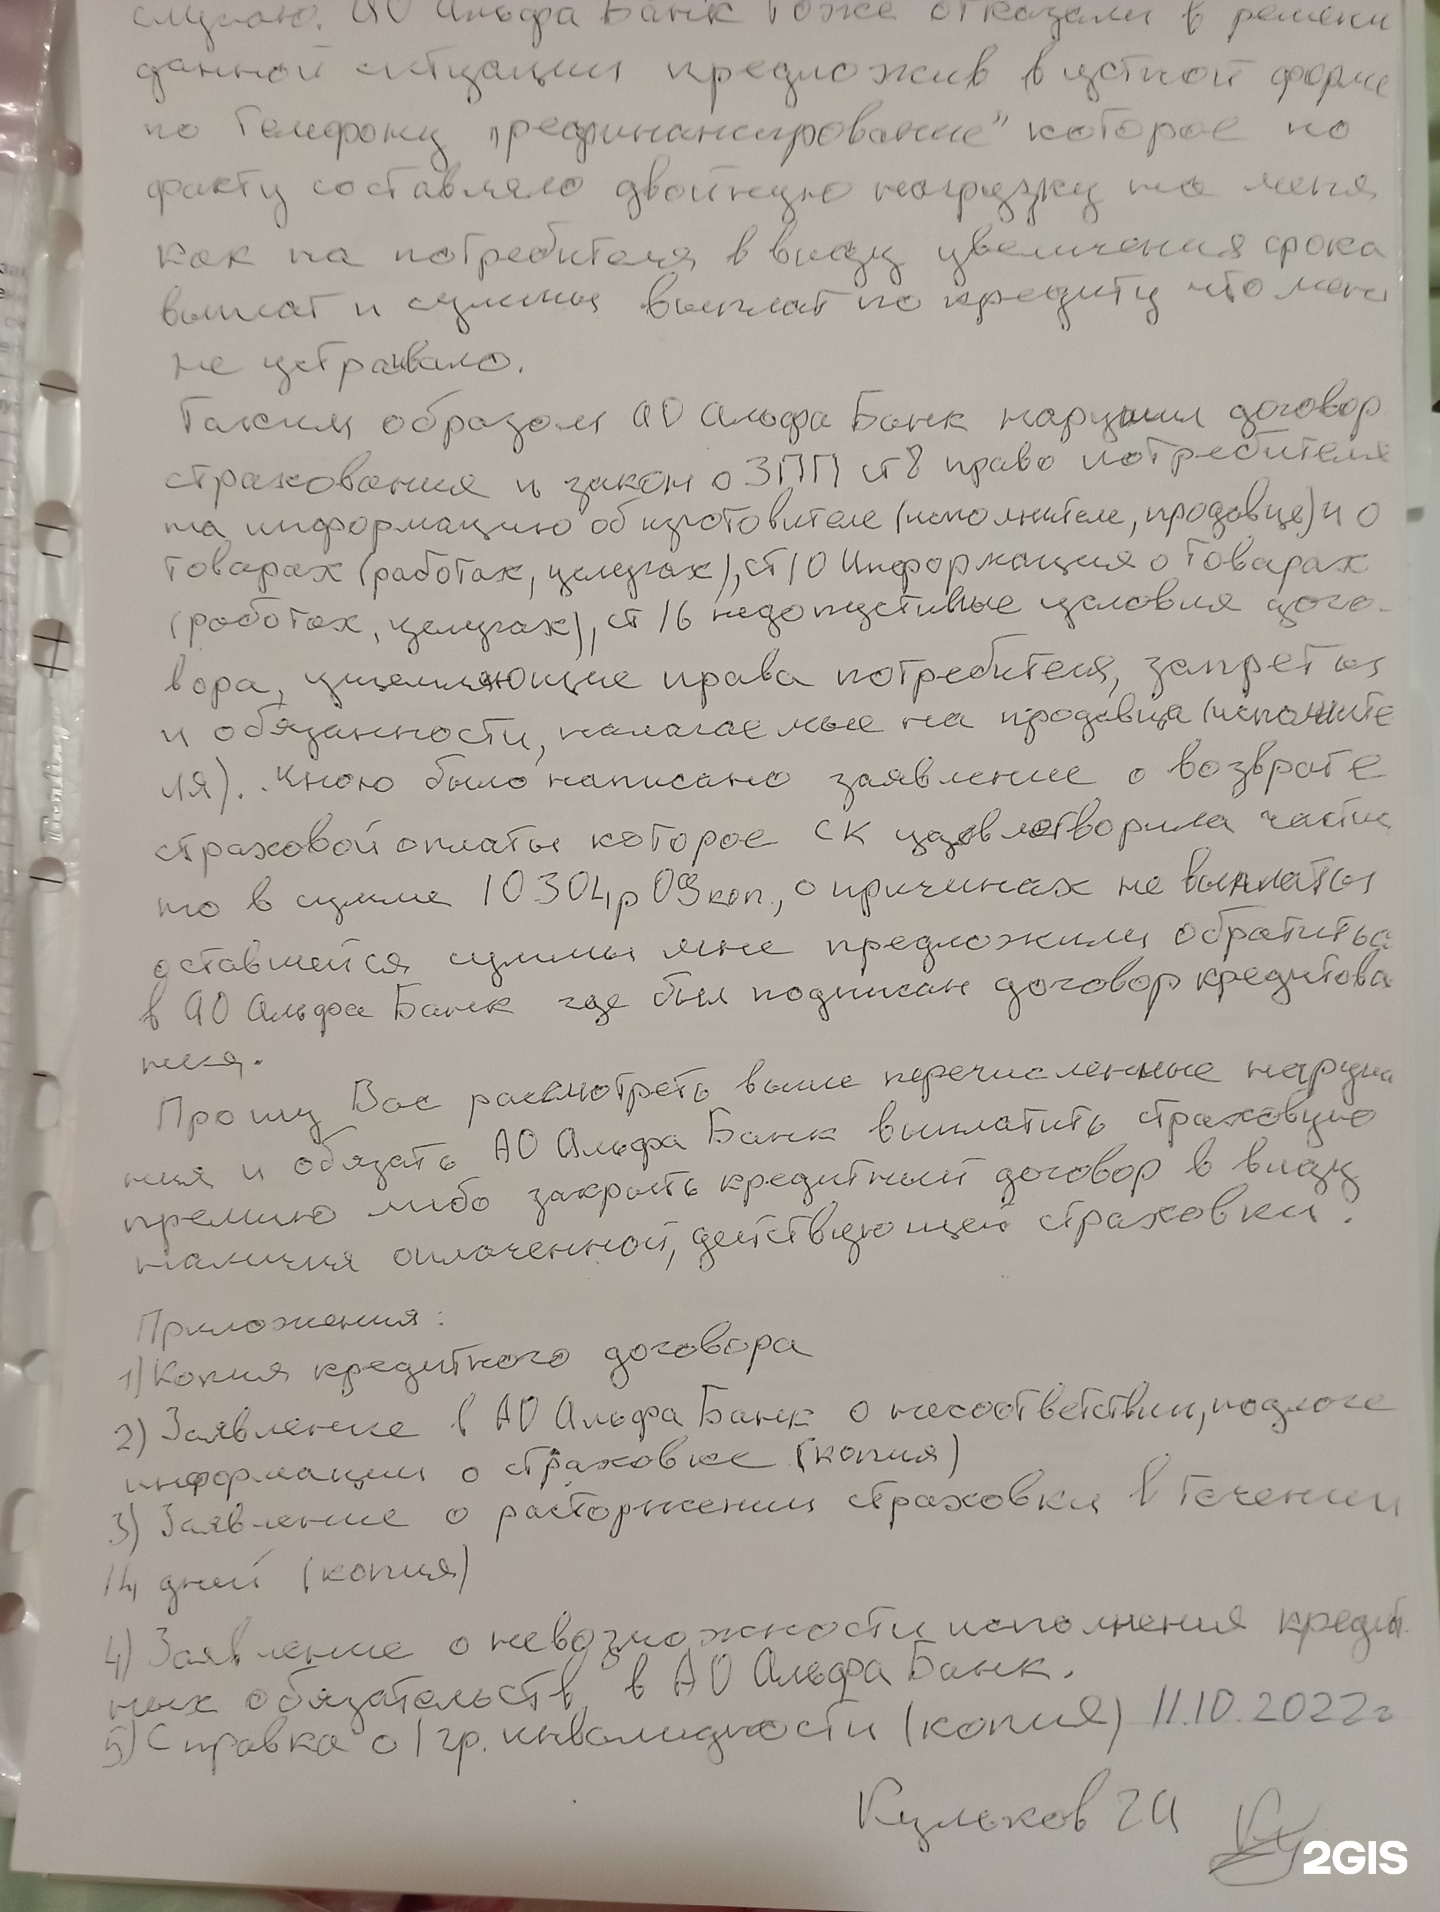 случаю. АО Альфа Банк тоже отказали в решени
данной ситуации предложив в устной форме
по телефону "рефинансирование" которое по
факту составляло двойную нагрузку на меня
как на потребителя в виду увеличения срока
выплат и суммы выплат по кредиту что меня
не устраивало.
Таким образом АО Альфа Банк нарушил договор
страхования и закон о ЗПП ст 8 право потребителя
на информацию об изготовителе (исполнителе, продавце) и о
товарах (работах, услугах), ст 10 Информация о товарах
(работах, услугах), ст 16 недопустимые условия дого-
вора, ущемляющие права потребителя, запреты
и обязанности, налагаемые на продавца (исполните
ля). Мною было написано заявление о возврате
страховой оплаты которое СК удовлетворила частич
но в сумме 10304р 09коп., о причинах не выплаты
оставшейся суммы мне предложили обратиться
в АО Альфа Банк где был подписан договор кредитова
ния.
Прошу Вас рассмотреть выше перечисленные наруше
ния и обязать АО Альфа Банк выплатить страховую
премию либо закрыть кредитный договор в виду
наличия оплаченной, действующей страховки.
Приложения:
1) Копия кредитного договора
2) Заявление в АО Альфа Банк о несоответствии, подлоге
информации о страховке (копия)
3) Заявление о расторжении страховки в течении
14 дней (копия)
4) Заявление о невозможности исполнения кредит
ных обязательств в АО Альфа Банк.
5) Справка о 1 гр. инвалидности (копия) 11.10.2022г
Кульков ГИ
2GIS